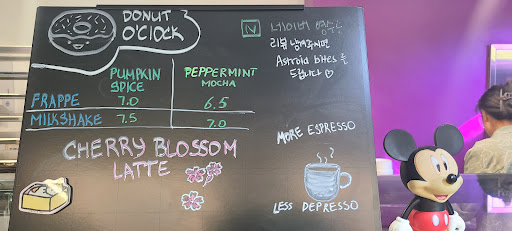 DONUT
O'CLOCK
PUMPKIN
SPICE
PEPPERMINT
MOCHA
FRAPPE 7.0 6.5
MILKSHAKE 7.5 7.0
CHERRY BLOSSOM
LATTE
N 네이버 영수증
리뷰 남겨주시면
Astroid bites 를
드립니다 ♡
MORE ESPRESSO
LESS DEPRESSO